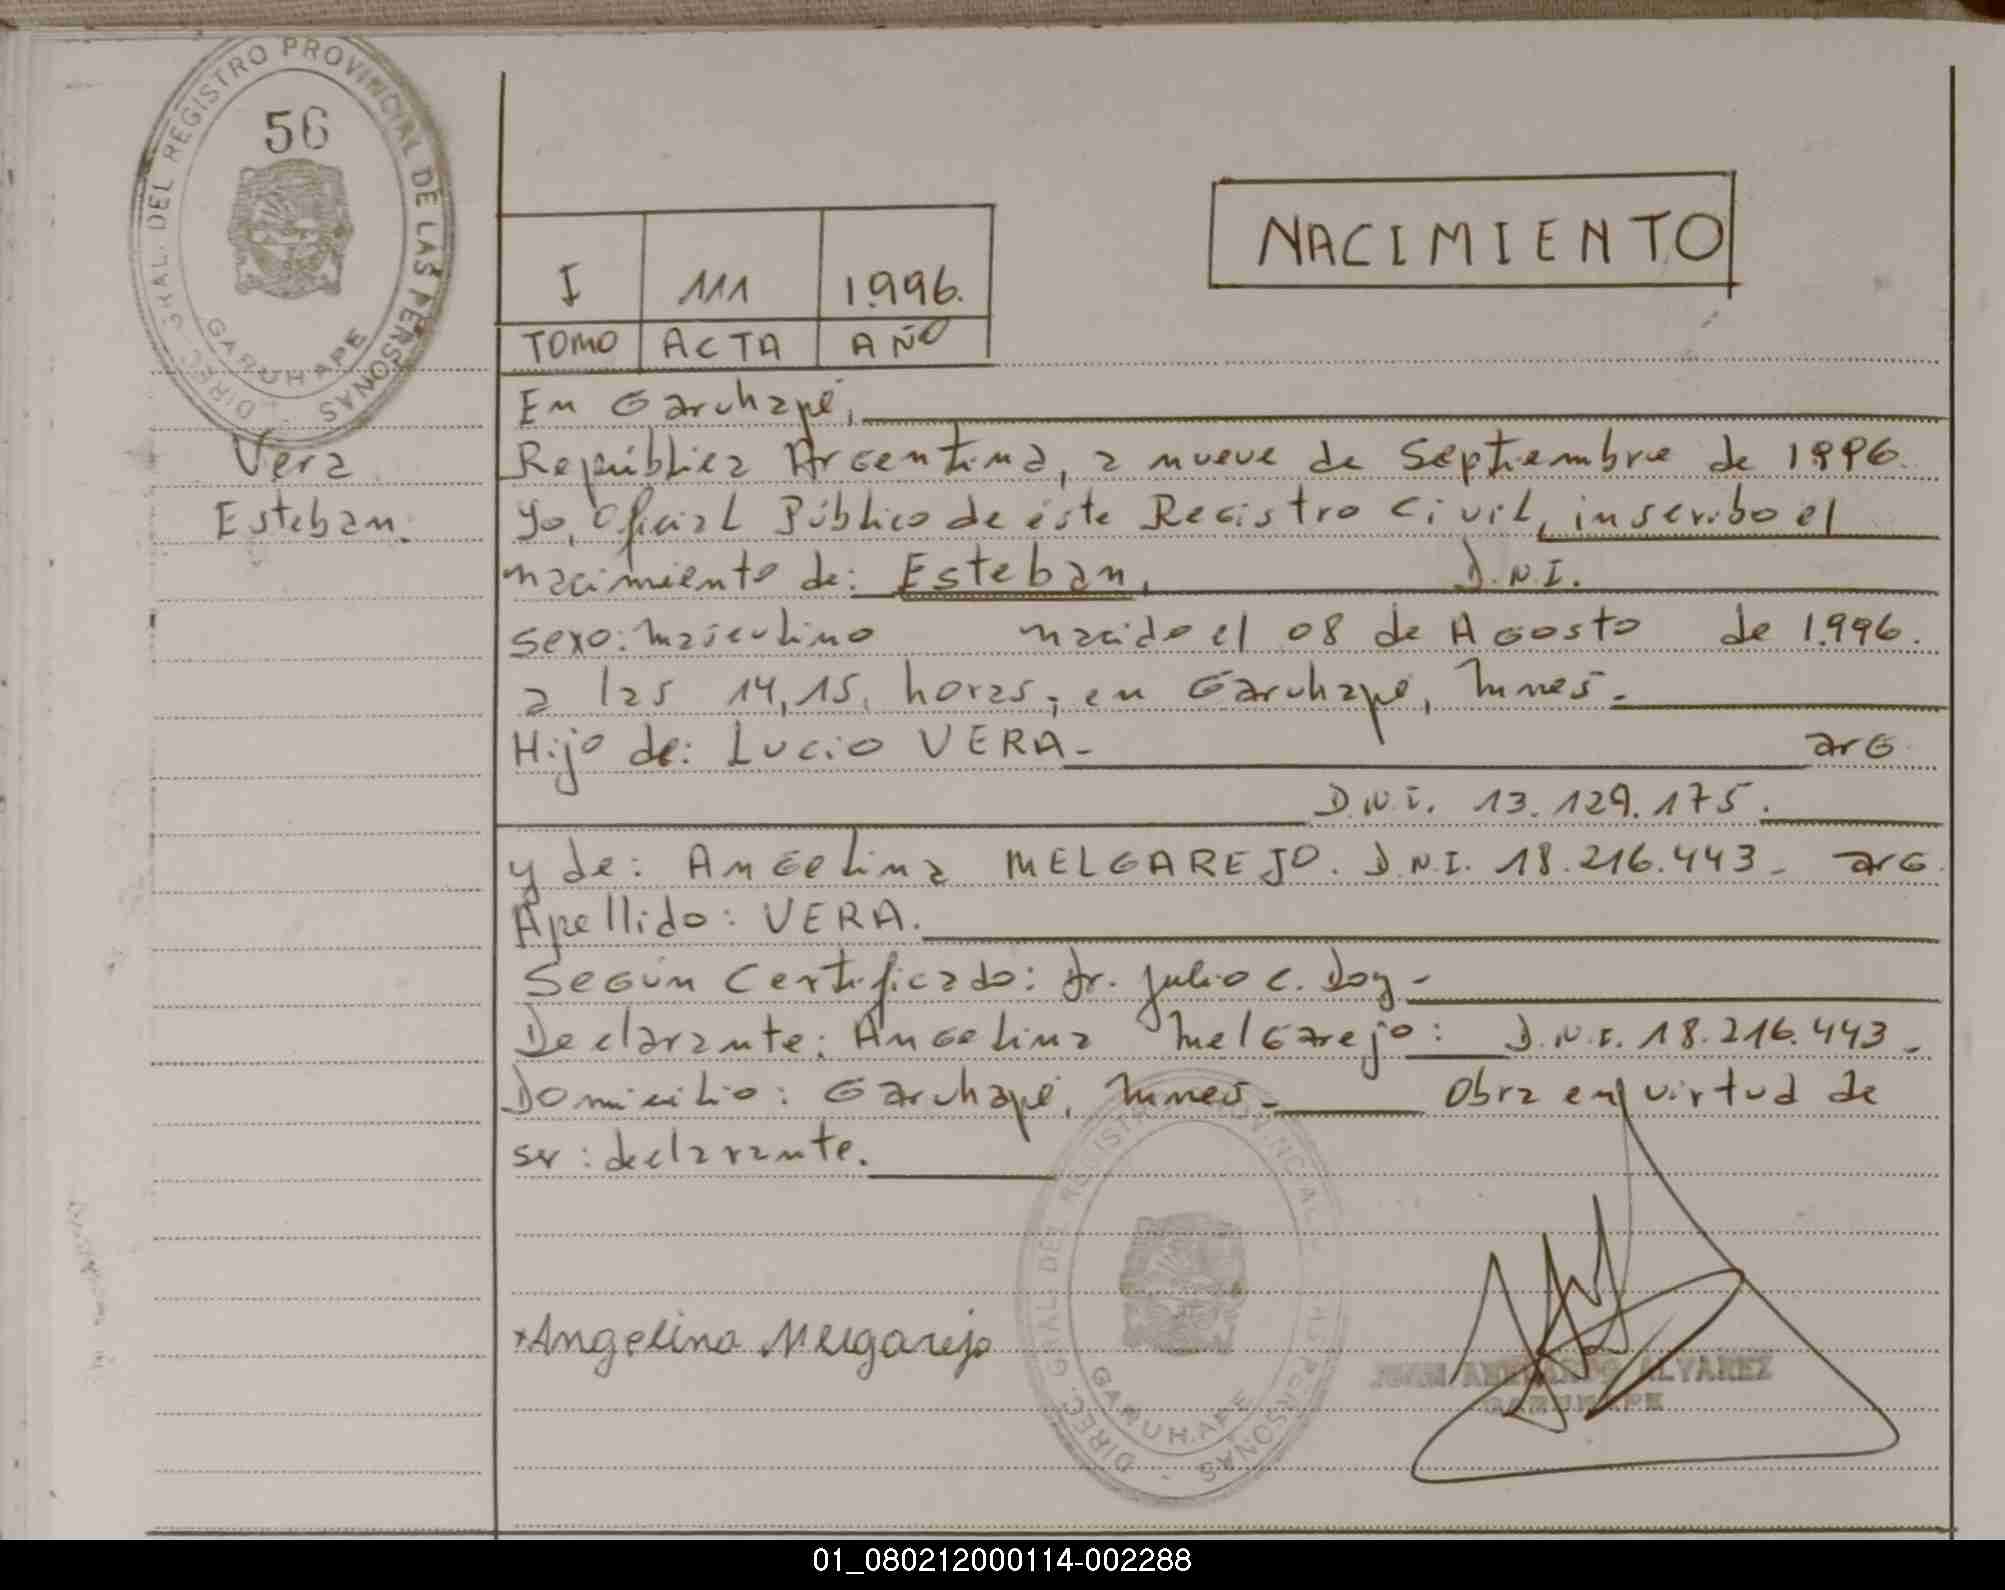 DIREC. GRAL. DEL REGISTRO PROVINCIAL DE LAS PERSONAS
56
GARUHAPE
NACIMIENTO
I 111 1.996.
TOMO ACTA AÑO
Vera
Esteban.
En Garuhapé,
República Argentina, a nueve de Septiembre de 1996.
Yo, Oficial Público de éste Registro Civil, inscribo el
nacimiento de: Esteban, D.N.I.
sexo: masculino nacido el 08 de Agosto de 1.996.
a las 14,15, horas, en Garuhapé, Mnes.
Hijo de: Lucio VERA- arg
D.N.I. 13.129.175.
y de: Angelina MELGAREJO. D.N.I. 18.216.443- arg.
Apellido: VERA.
Según Certificado: Dr. Julio C. Doy-
Declarante: Angelina Melgarejo: D.N.I. 18.216.443-
Domicilio: Garuhapé, Mnes- Obra en virtud de
ser: declarante.
DIREC. GRAL. DEL REGISTRO PROVINCIAL DE LAS PERSONAS
GARUHAPE
Angelina Melgarejo
ALVAREZ
GARUHAPE
01_080212000114-002288